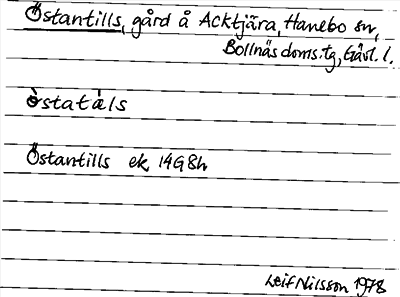 Östantills, gård å Acktjära, Hanebo sn,
Bollnäs doms.tg, Gävl. l.
òstatàls
Östantills ek 14G8h
Leif Nilsson 1978